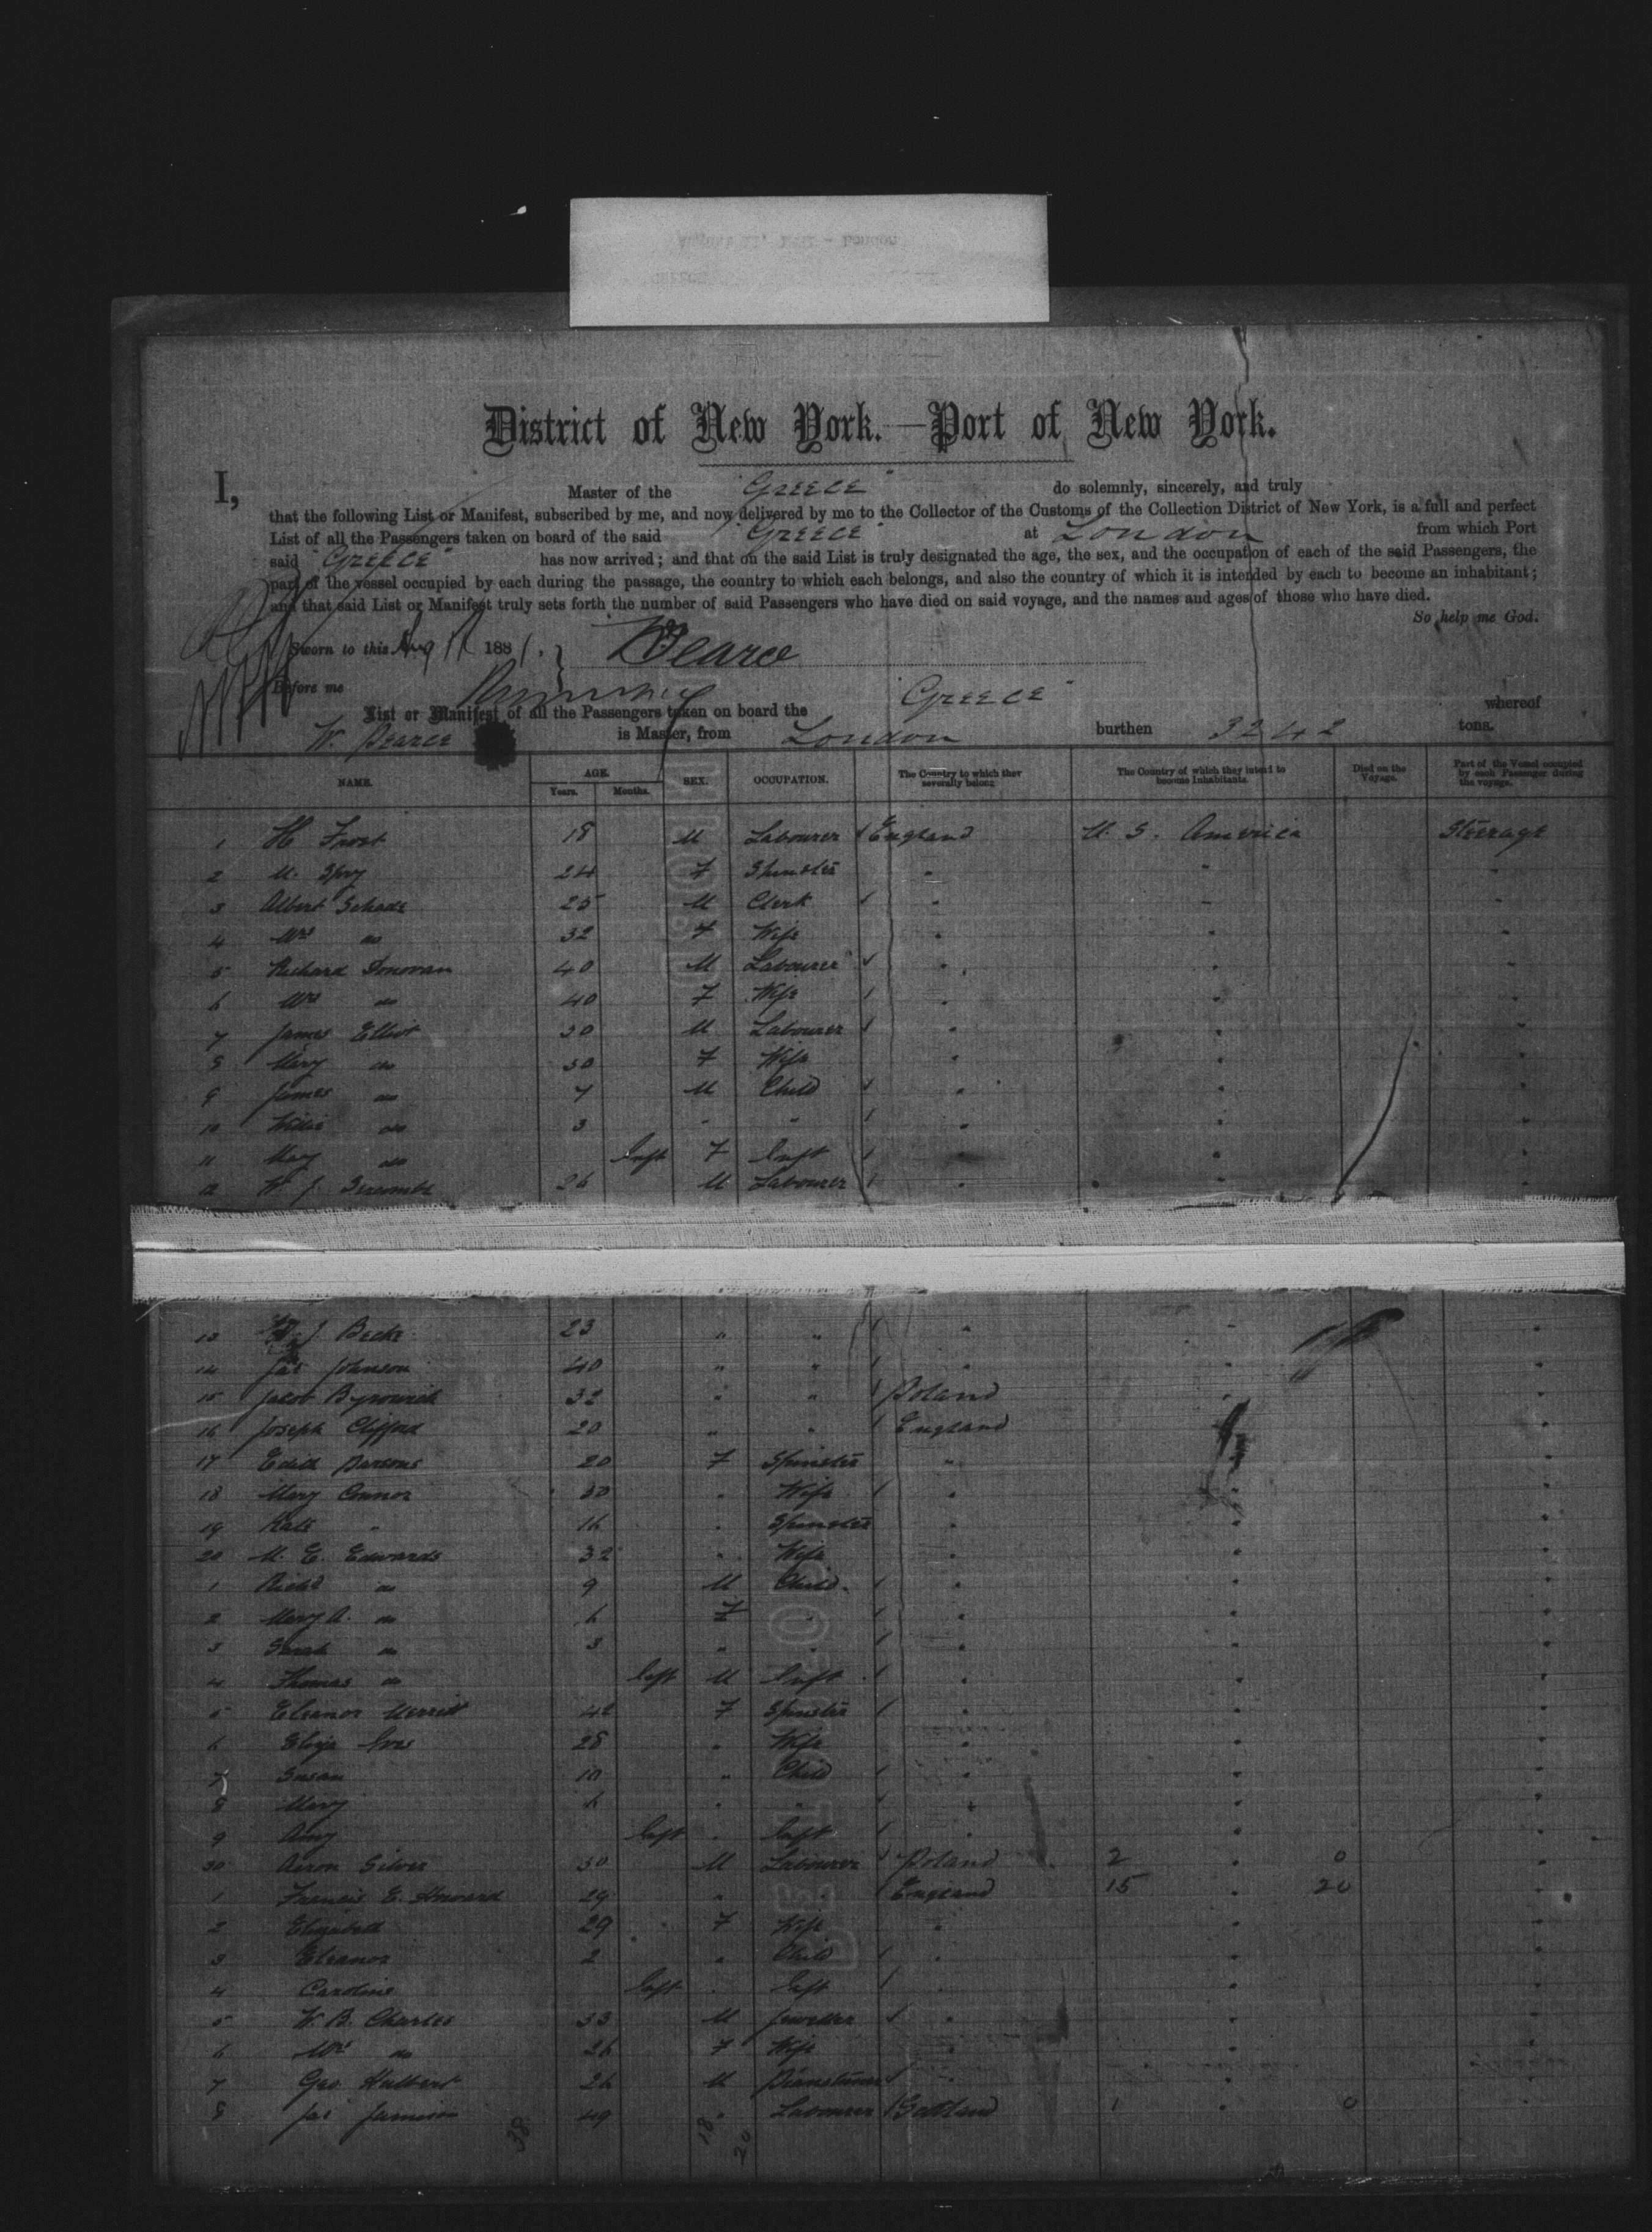 District of New York.—Port of New York.
I, Master of the "Greece" do solemnly, sincerely, and truly
that the following List or Manifest, subscribed by me, and now delivered by me to the Collector of the Customs of the Collection District of New York, is a full and perfect
List of all the Passengers taken on board of the said "Greece" at London from which Port
said "Greece" has now arrived; and that on the said List is truly designated the age, the sex, and the occupation of each of the said Passengers, the
part of the vessel occupied by each during the passage, the country to which each belongs, and also the country of which it is intended by each to become an inhabitant;
and that said List or Manifest truly sets forth the number of said Passengers who have died on said voyage, and the names and ages of those who have died.
So help me God.
Sworn to this Aug 11 1881. Pearce
Before me
List or Manifest of all the Passengers taken on board the "Greece" whereof
W. Pearce is Master, from London burthen 3242 tons.
NAME. AGE. SEX. OCCUPATION. The Country to which they severally belong The Country of which they intend to become Inhabitants. Died on the Voyage. Part of the Vessel occupied by each Passenger during the voyage.
Years. Months.
1 H Frost 18 M Labourer England U. S. America Steerage
2 M. Spry 24 F Spinster "
3 Albert Schade 25 M Clerk "
4 Mrs do 32 F Wife "
5 Richard Donovan 40 M Labourer "
6 Mrs do 40 F Wife "
7 James Elliot 30 M Labourer "
8 Mary do 30 F Wife "
9 James do 7 M Child "
10 Willie do 3 " " "
11 Mary do Inft F Inft "
12 W. J. 26 M Labourer "
13 J Beck 23 " " "
14 Jas Johnson 40 " " "
15 Jacob 32 " " Poland
16 Joseph Clifford 20 " " England
17 Edith Parsons 20 F Spinster "
18 Mary Connor 30 " Wife "
19 Kate " 16 " Spinster "
20 M. E. Edwards 32 " Wife "
1 Richd do 9 M Child "
2 Mary A. do 6 F " "
3 Sarah do 3 " " "
4 Thomas do Inft M Inft "
5 Eleanor Merritt 42 F Spinster "
6 Eliza Ives 28 " Wife "
7 Susan 10 " Child "
8 Mary 6 " " "
9 Amy Inft " Inft "
30 Aaron Silver 30 M Labourer Poland 2 " 0
1 Francis E. Howard 29 " England 15 " 20
2 Elizabeth 29 F Wife "
3 Eleanor 2 " Child "
4 Caroline Inft " Inft "
5 W. B. Charles 33 M Jeweller "
6 Mrs do 26 F Wife "
7 Geo. Hulbert 26 M "
8 Jas Jamison 49 " Labourer Scotland 1 " 0
38 18 20